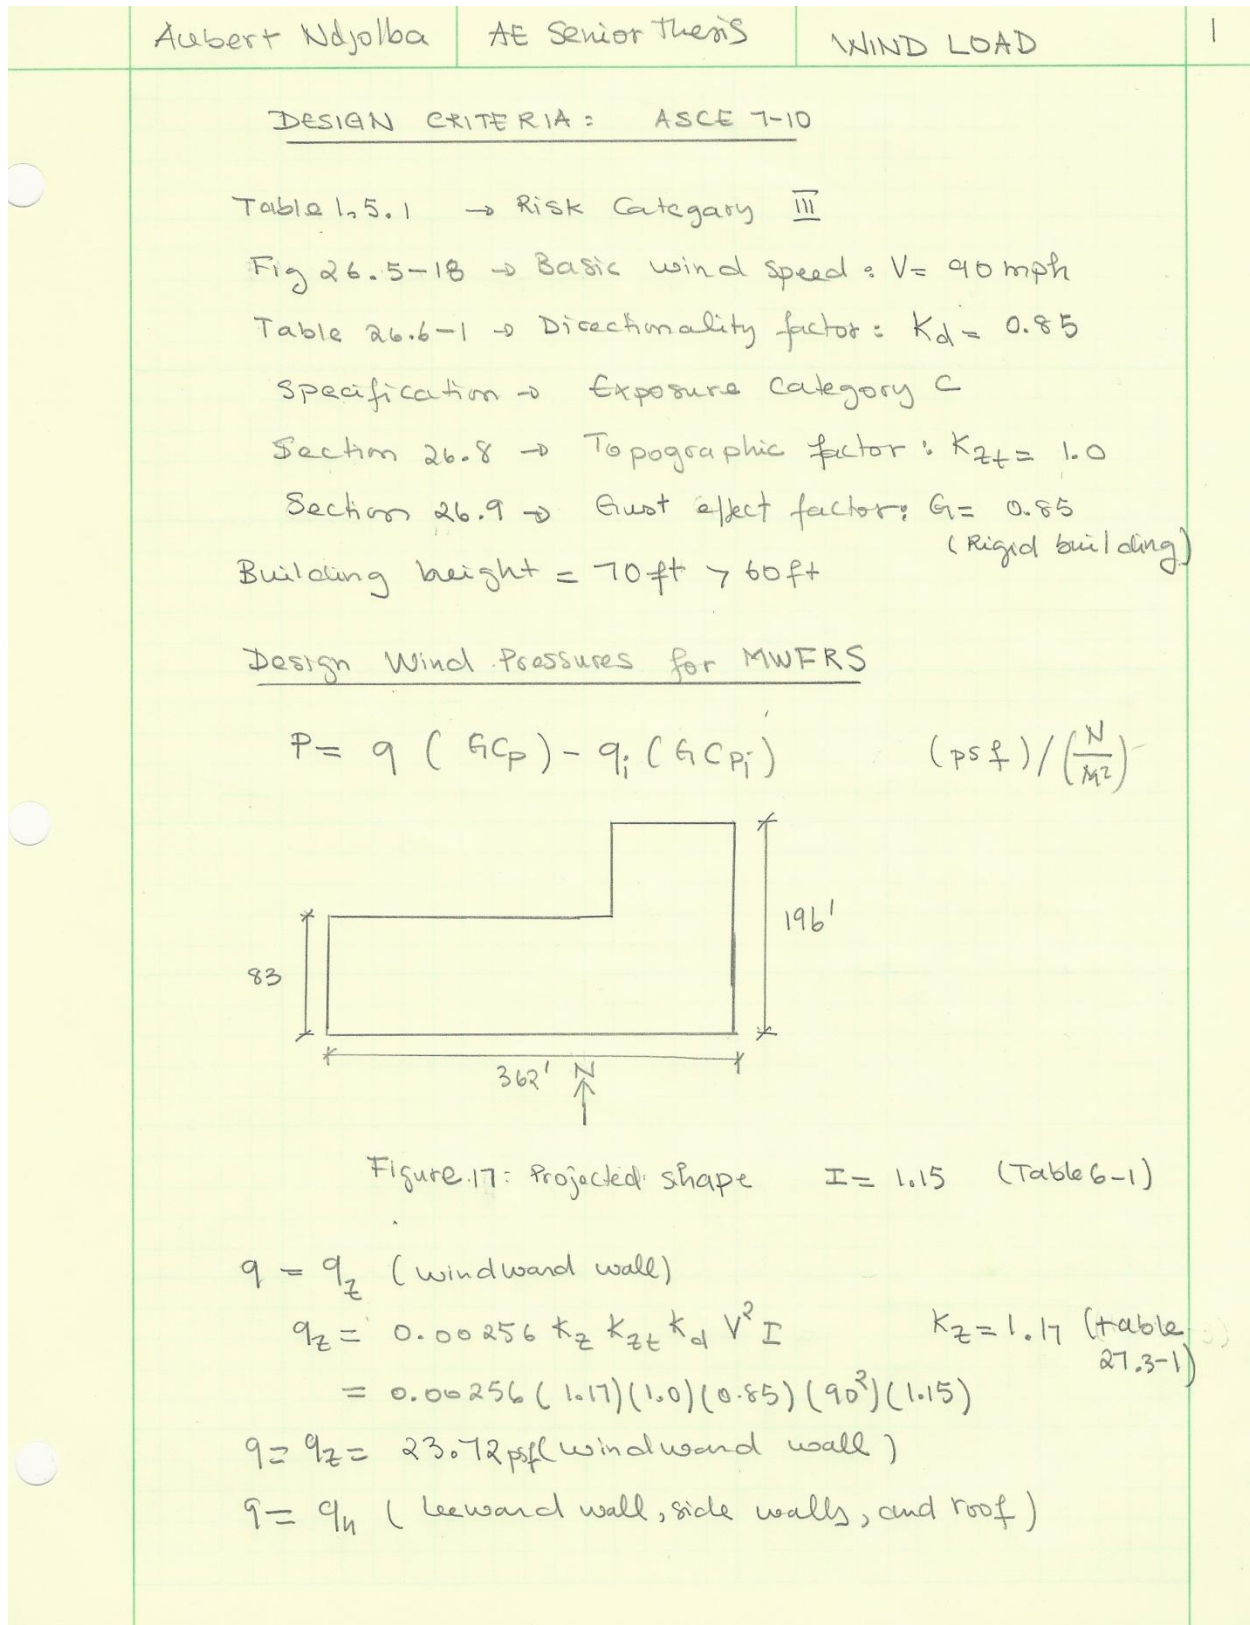 Aubert Ndjolba
AE Senior Thesis
WIND LOAD
1
DESIGN CRITERIA: ASCE 7-10
Table 1.5.1 → Risk Category III
Fig 26.5-1B → Basic wind speed: V= 90 mph
Table 26.6-1 → Directionality factor: Kd = 0.85
Specification → Exposure Category C
Section 26.8 → Topographic factor: Kzt = 1.0
Section 26.9 → Gust effect factor: G= 0.85
(Rigid building)
Building height = 70ft > 60ft
Design Wind Pressures for MWFRS
P= q (GCp) - qi (GCpi) (psf)/(N/m²)
196'
83
362' N
Figure 17: Projected shape I= 1.15 (Table 6-1)
q = qz (windward wall)
qz = 0.00256 Kz Kzt Kd V² I Kz = 1.17 (table
27.3-1)
= 0.00256 (1.17)(1.0)(0.85)(90²)(1.15)
q= qz= 23.72 psf (windward wall)
q= qh (leeward wall, side walls, and roof)